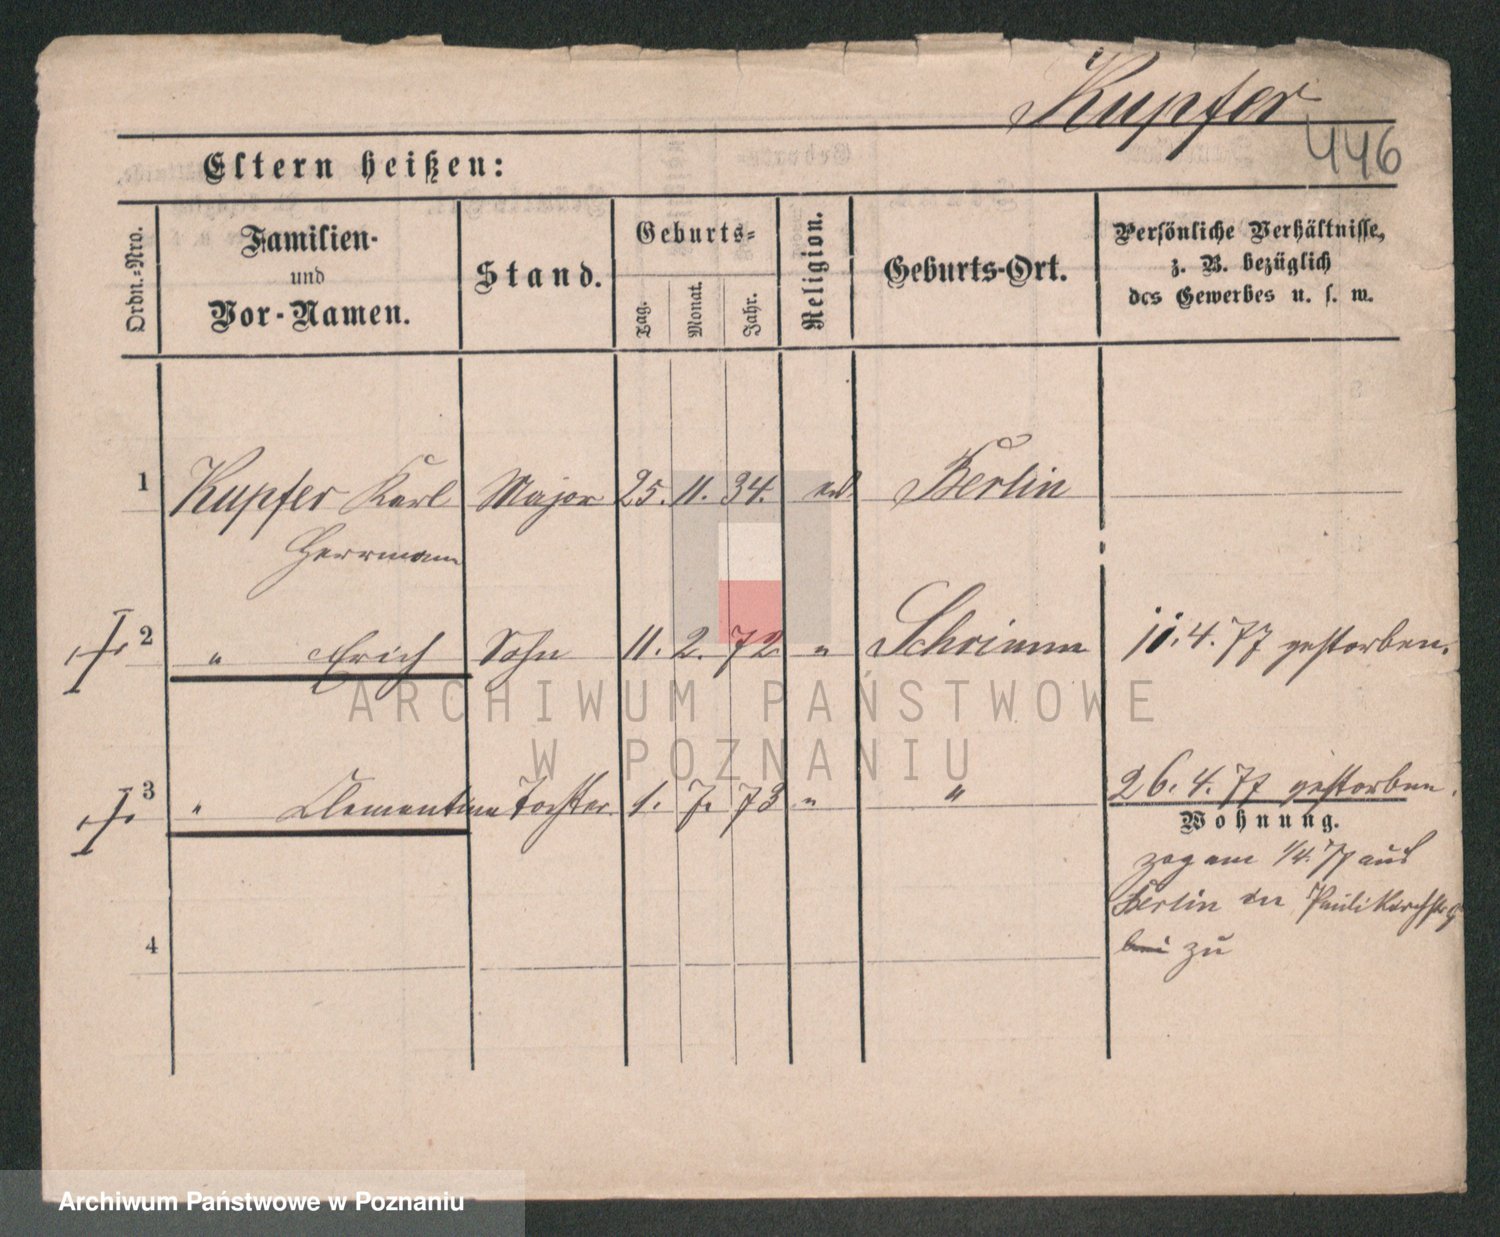 Kupfer
446
Eltern heißen:
Ordn.-Nro.
Familien-
und
Vor-Namen.
Stand.
Geburts-
Tag.
Monat.
Jahr.
Religion.
Geburts-Ort.
Persönliche Verhältnisse,
z. B. bezüglich
des Gewerbes u. s. w.
1 Kupfer Karl Major 25. 11. 34. Berlin
Herrmann
2 " Erich Sohn 11. 2. 72 " Schrimm 11. 4. 77 gestorben.
3 " Clementine Tochter 1. 7. 73 " " 26. 4. 77 gestorben.
Wohnung.
zog am 1/4. 77 aus
Berlin Paulikirchstr
bei zu
4
ARCHIWUM PAŃSTWOWE
W POZNANIU
Archiwum Państwowe w Poznaniu